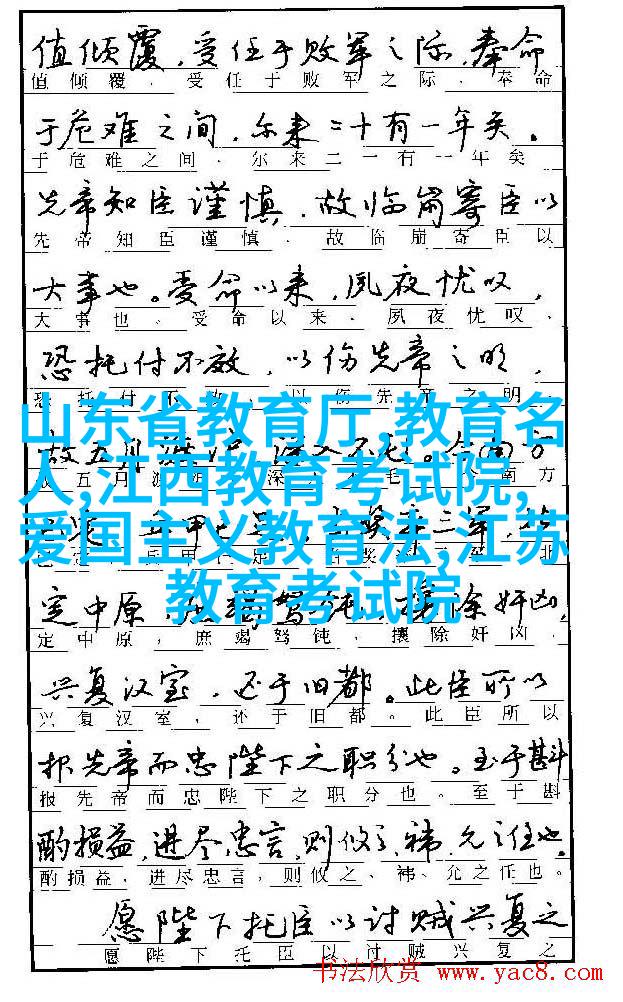 值倾覆，受任于败军之际，奉命
值倾覆，受任于败军之际，奉命
于危难之间，尔来二十有一年矣。
于危难之间，尔来二一有一年矣
先帝知臣谨慎，故临崩寄臣以
先帝知臣谨慎，故临崩寄臣以
大事也。受命以来，夙夜忧叹，
大事也。受命以来，夙夜忧叹，
恐托付不效，以伤先帝之明，
恐托付不效，以伤先帝之明，
山东省教育厅,教育名
故五月渡泸，深入不毛。今南方
人,江西教育考试院,
爱国主义教育法,江苏
教育考试院
定中原，庶竭驽钝，攘除奸凶，
定中原，庶竭驽钝，攘除奸凶，
兴复汉室，还于旧都。此臣所以
兴复汉室，还于旧都。此臣所以
报先帝而忠陛下之职分也。至于斟
报先帝而忠陛下之职分也。至于斟
酌损益，进尽忠言，则攸之、祎、允之任也。
酌损益，进尽忠言，则攸之、祎、允之任也。
愿陛下托臣以讨贼兴复之
愿陛下托臣以讨贼兴复之
书法欣赏 www.yac8.com